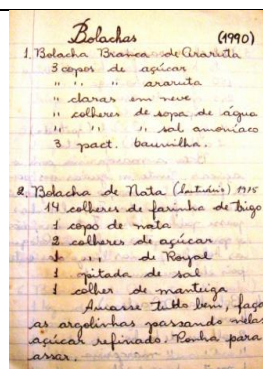 Bolachas (1990)
1. Bolacha Branca de Araruta
3 copos de açúcar
" " " araruta
" claras em neve
" colheres de sopa de água
" " " sal amoníaco
3 pact. baunilha.
2. Bolacha de Nata 1915
14 colheres de farinha de trigo
1 copo de nata
2 colheres de açúcar
1 " de Royal
1 pitada de sal
1 colher de manteiga
Amasse tudo bem, faça
as argolinhas passando nelas
açúcar refinado. Ponha para
assar.